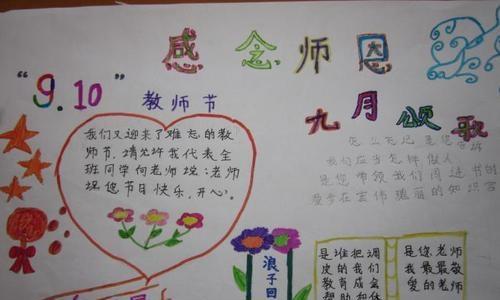 感念师恩
"9.10"
教师节
九月颂歌
我们又迎来了难忘的教
师节,请允许我代表全
班同学向老师说:老师
祝您节日快乐,开心。
我们应当怎样做人
是您带领我们阅进书的
浪子回
是谁把调
皮的我们
教育成会
是您老师
我最最敬
爱的老师